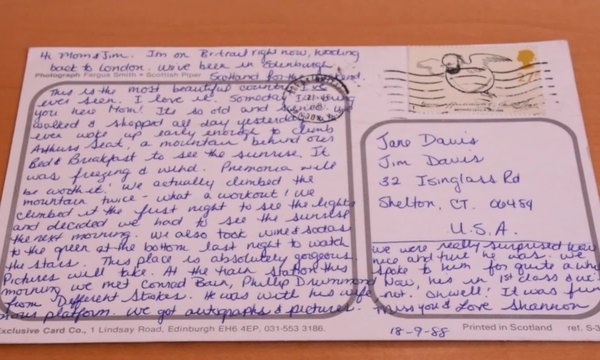 Hi Mom & Jim. I'm on Britrail right now, heading
back to London. We've been in Edinburgh
Photograph Fergus Smith • Scottish Piper
Scotland for the weekend.
This is the most beautiful country I've
ever seen. I love it. Someday I'll bring
you here Mom! It's so old and We
walked & shopped all day yesterday
ever woke up early enough to climb
Arthurs Seat, a mountain behind our
Bed & Breakfast to see the sunrise. It
was freezing & wind. Pnemonia will
be worth it. We actually climbed the
mountain twice - what a workout! We
climbed it the first night to see the lights
and decided we had to see the sunrise
the next morning. We also took wine & sodas
to the green at the bottom last night to watch
the stars. This place is absolutely gorgeous.
Pictures will take. At the train station this
morning we met Conrad Bain, Phillip Drummond
from Different Strokes. He was with his wife
on our platform. We got autographs & pictures.
27
Jane Davis
Jim Davis
32 Isinglass Rd
Shelton, CT. 06484
U.S.A.
we were really surprised how
nice and he was. We
spoke to him for quite awhile
Now, his in 1st class & we're
not. Oh well! It was fun
Miss you & Love Shannon
18-9-88
Exclusive Card Co., 1 Lindsay Road, Edinburgh EH6 4EP. 031-553 3186.
Printed in Scotland
ref. S-3